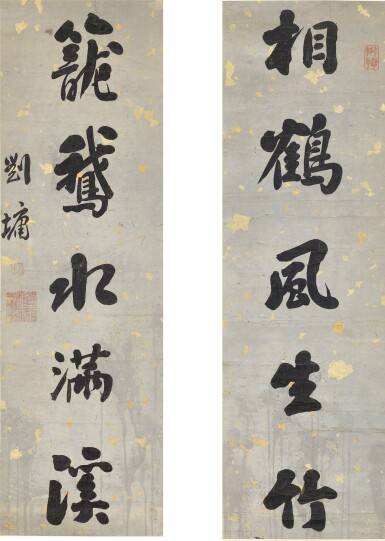 相鶴風生竹
籠鵞水滿溪
劉墉